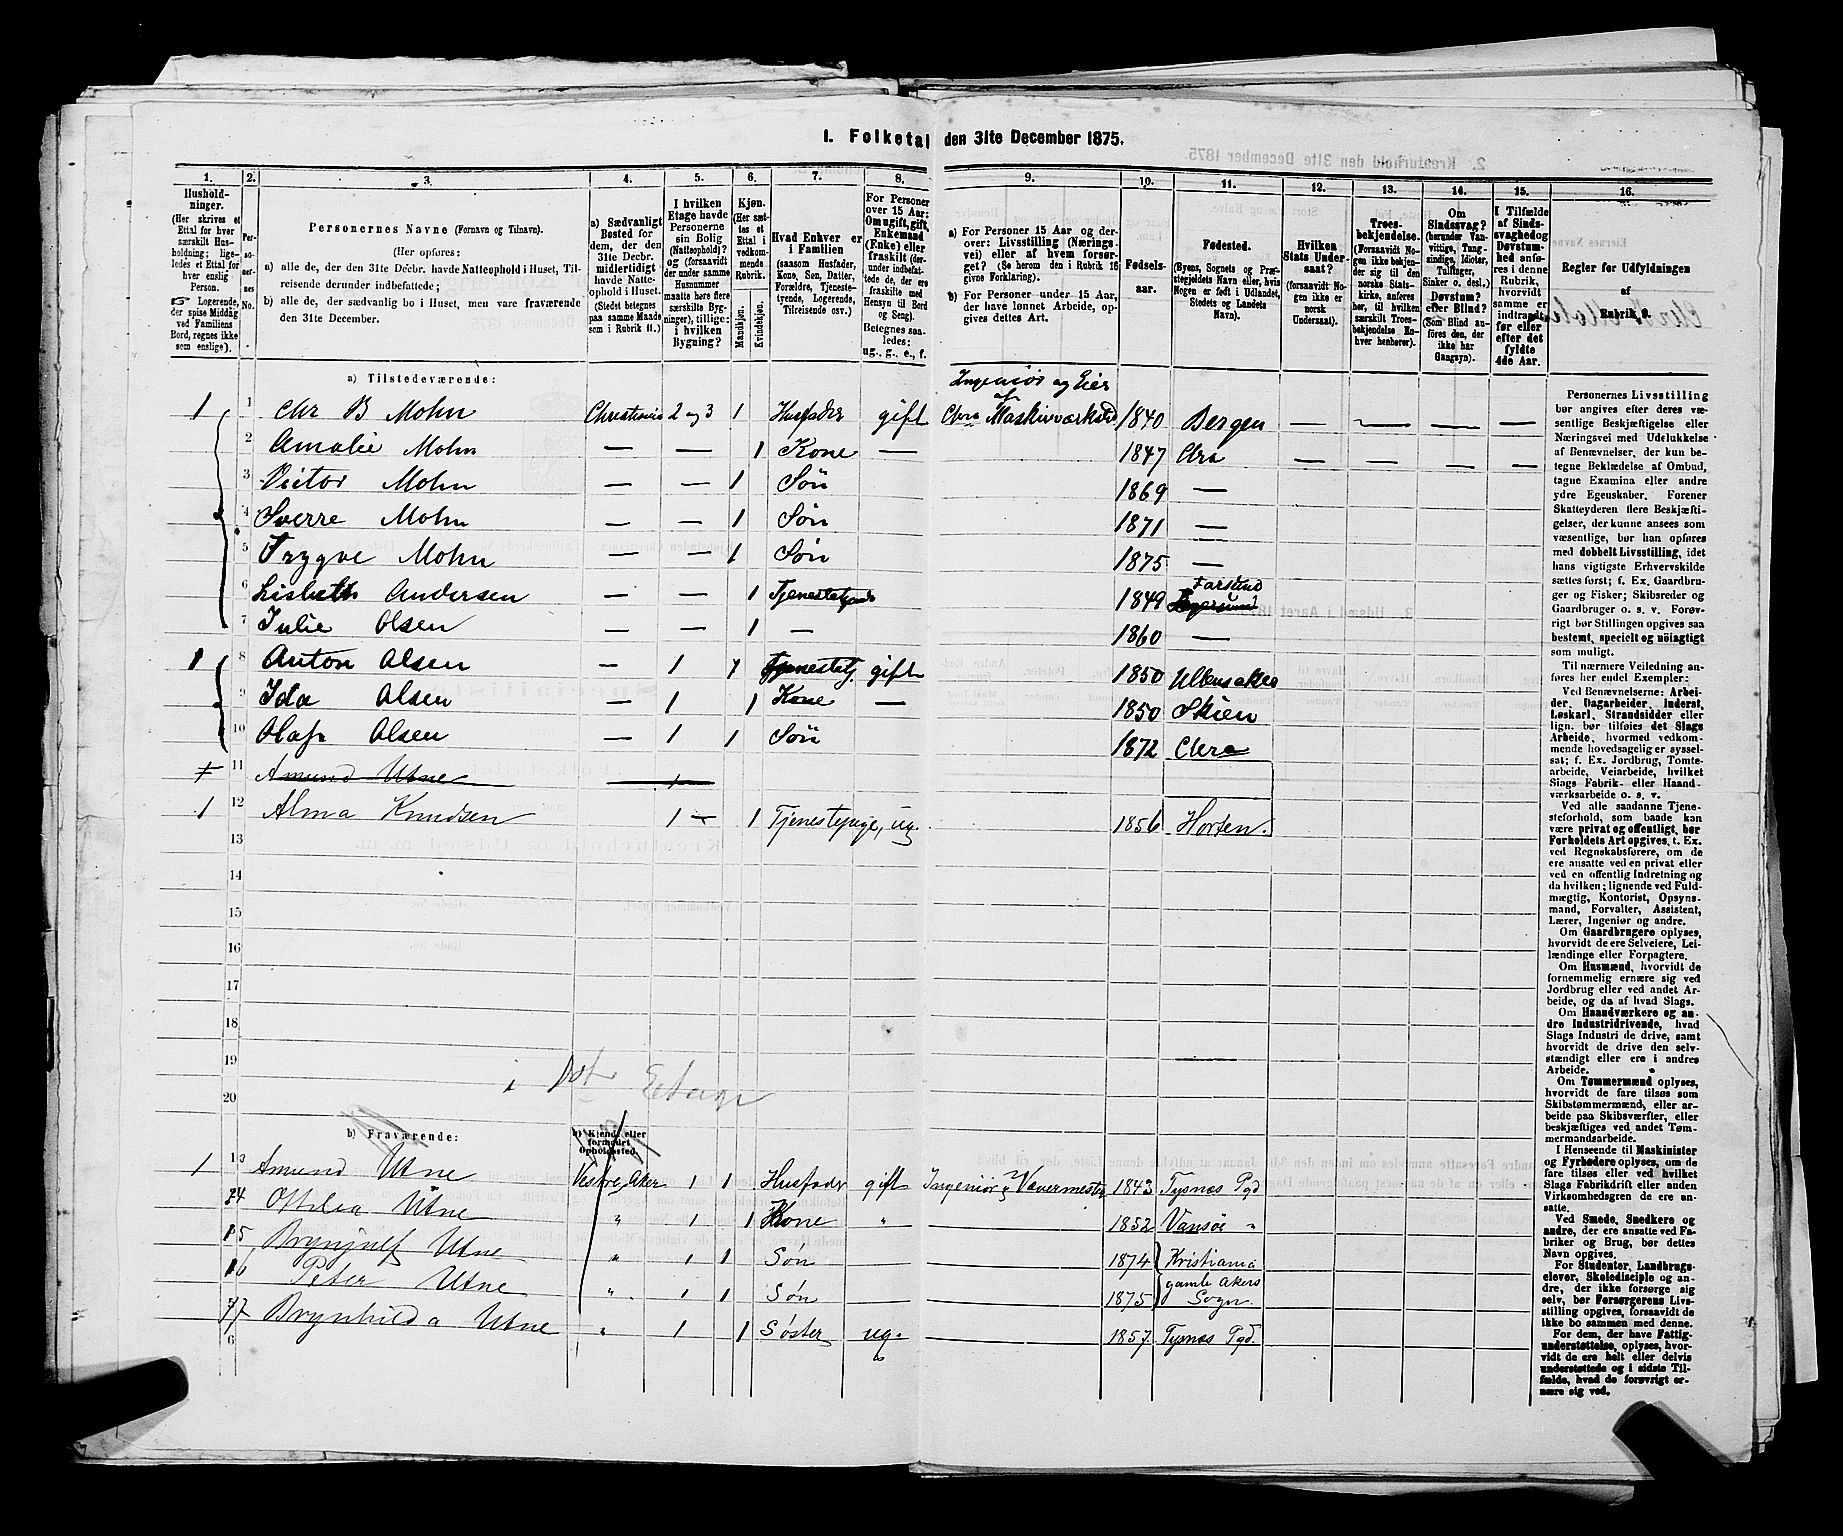 1. Folketal den 31te December 1875.
1. 2. 3. 4. 5. 6. 7. 8. 9. 10. 11. 12. 13. 14. 15. 16.
Hushold-
ninger.
(Her skrives et
Ettal for hver
særskilt Hus-
holdning; lige-
ledes et Ettal for
hver enslig
Person.
☞ Logerende,
der spise Middag
ved Familiens
Bord, regnes ikke
som enslige).
Per-
soner-
nes
No.
Personernes Navne (Fornavn og Tilnavn).
(Her opføres:
a) alle de, der den 31te Decbr. havde Natteophold i Huset, Til-
reisende derunder indbefattede;
b) alle de, der sædvanlig bo i Huset, men vare fraværende
den 31te December.
a) Sædvanligt
Bosted for
dem, der den
31te Decbr.
midlertidigt
havde Natte-
ophold i Huset.
(Stedet betegnes
paa samme Maade
som i Rubrik 11.)
I hvilken
Etage havde
Personerne
sin Bolig
(Natteophold)?
(forsaavidt
der under samme
Husnummer
maatte høre flere
særskilte Byg-
ninger), tillige:
i hvilken
Bygning?
Kjøn.
(Her sæt-
tes et
Ettal i
vedkom-
mende
Rubrik.
Mandkjøn.
Kvindekjøn.
Hvad Enhver er
i Familien
(saasom Husfader,
Kone, Søn, Datter,
Forældre, Tjeneste-
tyende, Logerende,
Tilreisende osv.)
For Personer
over 15 Aar:
Om ugift, gift,
Enkemand
(Enke) eller
fraskilt (der-
under indbefat-
tede de, der ere
fraskilte med
Hensyn til Bord
og Seng).
Betegnes saa-
ledes:
ug., g., e., f.
a) For Personer 15 Aar og der-
over: Livsstilling (Nærings-
vei) eller af hvem forsør-
get? (Se herom den i Rubrik 16
givne Forklaring).
b) For Personer under 15 Aar,
der have lønnet Arbeide, op-
gives dettes Art.
Fødsels-
aar.
Fødested.
(Byens, Sognets og Præ-
stegjeldets Navn eller, hvis
Nogen er født i Udlandet,
Stedets og Landets
Navn).
Hvilken
Stats Under-
saat?
(forsaavidt No-
gen ikke er
norsk
Undersaat).
Troes-
bekjendelse.
(Forsaavidt No-
gen ikke bekjen-
der sig til den
norske Stats-
kirke, anføres
her, til hvilken
særskilt Troes-
bekjendelse En-
hver henhører).
Om
Sindssvag?
(herunder Van-
vittige, Tung-
sindige, Idioter,
Tullinger,
Sinker o. desl.)
Døvstum?
eller Blind?
(Som Blind an-
føres den, der
ikke har
Gangsyn).
I Tilfælde
af Sinds-
svaghed og
Døvstum-
hed anfø-
res i denne
Rubrik,
hvorvidt
samme er
indtraadt
før eller
efter det
fyldte
4de Aar.
Regler for Udfyldningen
af
Rubrik 9.
a) Tilstedeværende:
Ingeniør og Eier
af
1 1 Chr B Mohn Christiania 2 og 3 1 Husfader gift Chra Maskinværksted 1840 Bergen — — — —
2 Amalie Mohn — — 1 Kone — 1847 Chra — — — —
3 Victor Mohn — — 1 Søn 1869 —
4 Sverre Mohn — — 1 Søn 1871 —
5 Trygve Mohn — — 1 Søn 1875 —
Farsund
6 Lisbeth Andersen — — 1 Tjenestetyende 1849
7 Julie Olsen — — 1 — 1860 —
1 8 Anton Olsen — 1 1 Tjenestetj. gift 1850 Ullensaker
9 Ida Olsen — 1 1 Kone — 1850 Skien
10 Olaf Olsen — 1 1 Søn 1872 Chra
11 Amund Utne
1 12 Alma Knudsen 1 — 1 Tjenestepige, ug. 1856 Horten.
13
14
15
16
17
18
19
20
i Etage
b) Fraværende:
b) Kjendt eller
formodet
Opholdssted.
1 13 Amund Utne Vestre Aker 1 1 Husfader gift Ingeniør & Vævermester 1843 Tysnæs Pgd
14 Ottilia Utne " 1 1 Kone " 1852 Vansø "
15 Brynjulf Utne " 1 1 Søn 1874 Kristiania
gamle Akers
16 Peter Utne " 1 1 Søn 1875 Sogn.
17 Brynhilda Utne " 1 1 Søster ug. 1857 Tysnæs Pgd.
6
Personernes Livsstilling
bør angives efter deres væ-
sentlige Beskjæftigelse eller
Næringsvei med Udelukkelse
af Benævnelser, der kun be-
tegne Beklædelse af Ombud,
tagne Examina eller andre
ydre Egenskaber. Forener
Skatteyderen flere Beskjæfti-
gelser, der kunne ansees som
væsentlige, bør han opføres
med dobbelt Livsstilling, idet
hans vigtigste Erhvervskilde
sættes først; f. Ex. Gaardbru-
ger og Fisker; Skibsreder og
Gaardbruger o. s. v. Forøv-
rigt bør Stillingen opgives saa
bestemt, specielt og nøiagtigt
som muligt.
Til nærmere Veiledning an-
føres her endel Exempler:
Ved Benævnelserne: Arbei-
der, Dagarbeider, Inderst,
Løskarl, Strandsidder eller
lign. bør tilføies det Slags
Arbeide, hvormed vedkom-
mende hovedsagelig er syssel-
sat; f. Ex. Jordbrug, Tomte-
arbeide, Veiarbeide, hvilket
Slags Fabrik- eller Haand-
værksarbeide o. s. v.
Ved alle saadanne Tjene-
steforhold, som baade kan
være privat og offentligt, bør
Forholdets Art opgives, t. Ex.
ved Regnskabsførere, om de
ere ansatte ved en privat eller
ved en offentlig Indretning og
da hvilken; lignende ved Fuld-
mægtig, Kontorist, Opsyns-
mand, Forvalter, Assistent,
Lærer, Ingeniør og andre.
Om Gaardbrugere oplyses,
hvorvidt de ere Selveiere, Lei-
lændinge eller Forpagtere.
Om Husmænd, hvorvidt de
fornemmelig ernære sig ved
Jordbrug eller ved andet Ar-
beide, og da af hvad Slags.
Om Haandværkere og an-
dre Industridrivende, hvad
Slags Industri de drive, samt
hvorvidt de drive den selv-
stændigt eller ere i andres
Arbeide.
Om Tømmermænd oplyses,
hvorvidt de fare tilsøs som
Skibstømmermænd, eller ar-
beide paa Skibsværfter, eller
beskjæftiges ved andet Tøm-
mermandsarbeide.
I Henseende til Maskinister
og Fyrbødere oplyses, om de
fare tilsøs eller ved hvilket
Slags Fabrikdrift eller anden
Virksomhedsgren de ere an-
satte.
Ved Smede, Snedkere og
andre, der ere ansatte ved Fa-
briker og Brug, bør dettes
Navn opgives.
For Studenter, Landbrugs-
elever, Skoledisciple og an-
dre, der ikke forsørge sig
selv, bør Forsørgerens Livs-
stilling opgives, forsaavidt de
ikke bo sammen med denne.
For dem, der have Fattig-
understøttelse, oplyses, hvor-
vidt de ere helt eller delvis
understøttede og i sidste Til-
fælde, hvad de forøvrigt er-
nære sig ved.